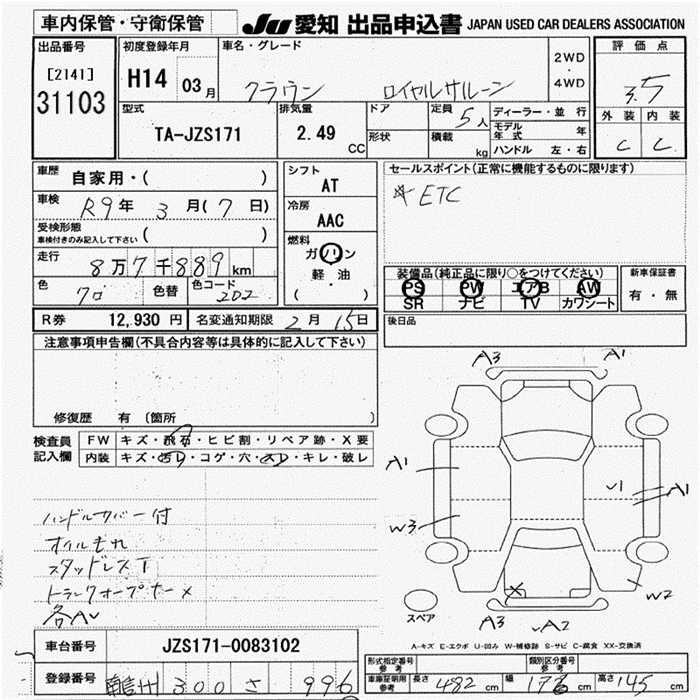 車内保管・守衛保管
JU 愛知 出品申込書 JAPAN USED CAR DEALERS ASSOCIATION
出品番号 初度登録年月 車名・グレード 評価点
[2141] 2WD
31103 H14 03月 クラウン ロイヤルサルーン ・ 3.5
4WD
型式 排気量 ドア 定員 5人 ディーラー・並行 外装 内装
TA-JZS171 2.49 CC 形状 積載 kg モデル年式 年 C C
ハンドル 左・右
車歴 自家用・( ) シフト セールスポイント(正常に機能するものに限ります)
車検 R9年 3月(7日) AT ※ETC
受検形態 冷房
車検付きのみ記入して下さい ( ) AAC
走行 8万7千889km 燃料 ガソリン
色 クロ 色替 色コード 202 軽・油
( )
装備品(純正品に限り○をつけてください) 新車保証書
PS PW エアB AW 有・無
SR ナビ TV カワシート
R券 12,930 円 名変通知期限 2月 15日 後日品
注意事項申告欄(不具合内容等は具体的に記入して下さい)
修復歴 有 〔箇所 〕
検査員 FW キズ・飛石・ヒビ割・リペア跡・X要
記入欄 内装 キズ・汚レ・コゲ・穴・スレ・キレ・破レ
ハンドルカバー付
オイルもれ
スタッドレスT
トランクオープナー×
各AU
A3 A1
A1 √1 A1
W3
W2
スペア A3 √A2
A-キズ E-エクボ U-凹み W-補修跡 S-サビ C-腐食 XX-交換済
車台番号 JZS171-0083102
登録番号 300 さ 996
形式指定番号 参考 類別区分番号 参考
車庫証明用 参考 長さ 482 cm 幅 176 cm 高さ 145 cm